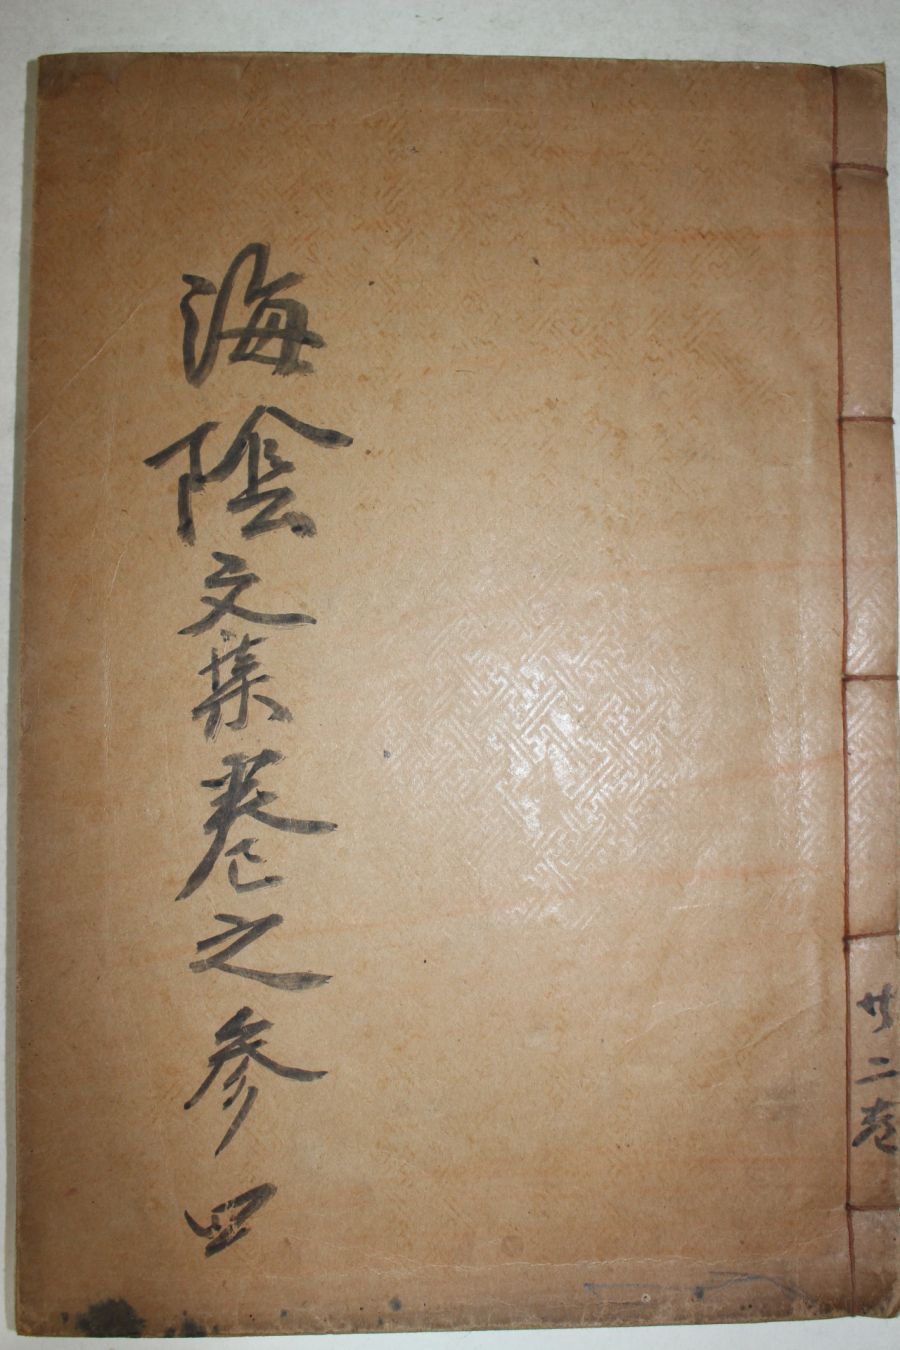 海陰文集卷之參四
共二卷